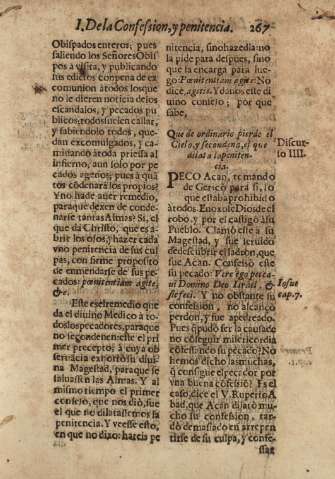 I. De la Confession, y penitencia. 267
Obispados enteros; pues
saliendo los Señores Obis
pos à visita, y publicando
sus edictos con pena de ex
comunion à todos los que
no le dieren noticia de los
escandalos, y pecados pu
blicos; todos suelen callar,
y sabiendolo todos, que-
dan excomulgados, y ca-
minando à toda priessa al
infierno, aun solo por pe
cados agenos; pues à quã
tos cõdenarà los propios?
Y no habe auer remedio,
paraque dexen de conde-
narse tantas Almas? Si, el
que dà Christo, que es a-
brir los ojos, y hazer cada
vno penitencia de sus cul
pas, con firme proposito
de enmendarse de sus pe-
cados: pœnitentiam agite,
&c.
Este es el remedio que
da el diuino Medico à to-
dos los pecadores, paraque
no se condenen: este el pri
mer precepto, à cuya ob
seruãcia exortò su diui
na Magestad, paraque se
saluassen las Almas. Y al
mismo tiempo el primer
consejo, que nos diò, fue
el que no dilatassemos la
penitencia. Y veese esto,
en que no dixo: hareis pe
nitencia, sino hazedla: no
la pide para despues, sino
que la encarga para lue-
go: Pœnitentiam agite: No
dice, agetis. Y danos este di
uino consejo; por que
sabe,
Que de ordinario pierde el
Cielo, y se condena, el que
dilata la peniten-
cia.
Discur-
so IIII.
PECO Acàn, tomando
de Gericò para sì, lo
que estaba prohibido à
todos. Enojose Dios de el
robo, y por el castigò à su
Pueblo. Clamò este à su
Magestad, y fue seruido
de descubrir el ladron, que
fue Acàn. Confesò este
su pecado: Vere ego pecca-
ui Domino Deo Israël, &
sic feci. Y no obstante su
confession, no alcançò
perdon, y fue apedreado.
Iosue
cap. 7.
Pues q̃ pudo ser la causa de
no conseguir misericordia
cõfessando su pecado? No
hemos dicho las muchas,
q̃ consigue el pecador por
vna buena cõfessiõ? Es el
caso, dice el V. Ruperto A
bad, que Acàn dilatò mu
cho su confession, tar-
dò demasiado en arrepen
tirse de su culpa, y confe-
ssar